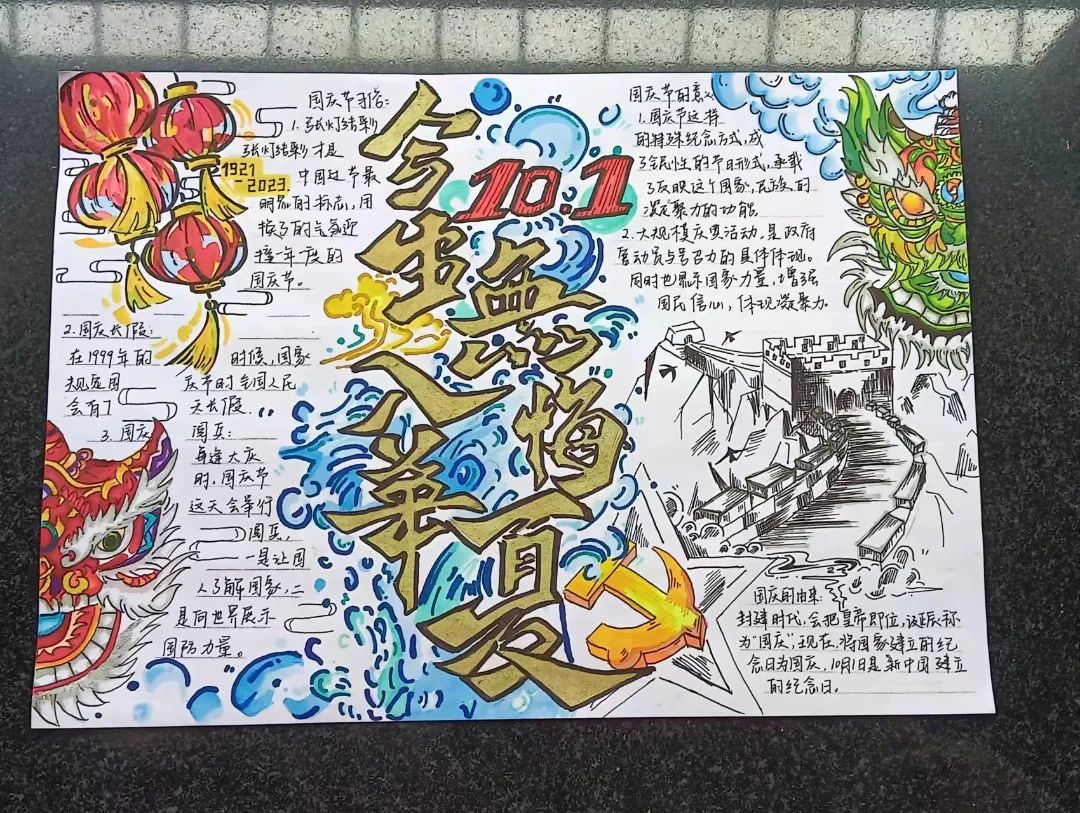 国庆节习俗:
1. 张灯结彩
张灯结彩才是
中国过节最
明显的标志,用
接了的气氛迎
接一年一度的
国庆节。
1921
-2023.
2. 国庆长假:
在1999年的 时候,国家
规定国 庆节时全国人民
会有了 天长假.
3. 国庆 阅兵:
每逢大庆
时,国庆节
这天会举行
阅兵,
一是让国
人了解国家,二
是向世界展示
国防力量。
今生無悔
入華夏
10.1
国庆节的意义
1. 国庆节这样
的特殊纪念方式,成
了全民性的节日形式,承载
了反映这个国家,民族的
凝聚力的功能.
2. 大规模庆典活动,是政府
动员与号召力的具体体现。
同时也显示国家力量,增强
国民信心,体现凝聚力.
国庆的由来:
封建时代,会把皇帝即位,诞辰称
为“国庆”,现在,将国家建立的纪
念日为国庆,10月1日是新中国建立
的纪念日。